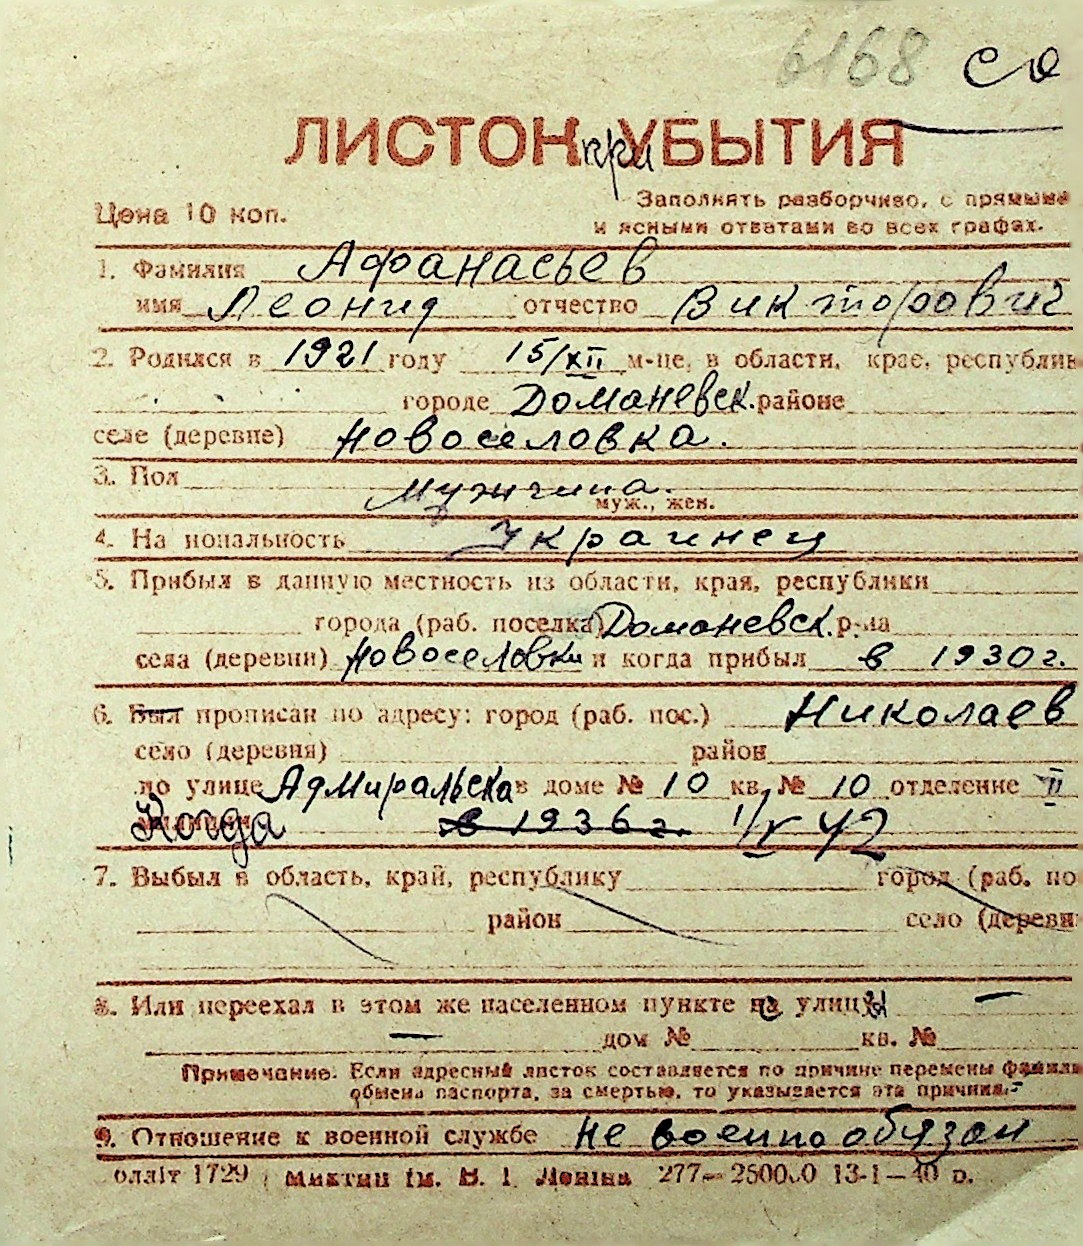 6168 со
ЛИСТОК при УБЫТИЯ
Цена 10 коп.
Заполнять разборчиво, с прямыми
и ясными ответами во всех графах.
1. Фамилия Афанасьев
имя Леонид отчество Викторович
2. Родился в 1921 году 15/XII м-це, в области, крае, республик
городе Доманевск. районе
селе (деревне) Новоселовка.
3. Пол мужчина.
муж., жен.
4. На иональность Украинец
5. Прибыл в данную местность из области, края, республики
города (раб. поселка) Доманевск. р-на
села (деревни) Новоселовки и когда прибыл в 1930 г.
6. Был прописан по адресу: город (раб. пос.) Николаев
село (деревня) район
по улице Адмиральска в доме № 10 кв. № 10 отделение II
Когда в 1936 г. 1/V 42
7. Выбыл в область, край, республику город (раб. по
район село (деревн
8. Или переехал в этом же населенном пункте на улицу
дом № кв. №
Примечание. Если адресный листок составляется по причине перемены фамили
обмена паспорта, за смертью, то указывается эта причина.
9. Отношение к военной службе не военнообязан
олліт 1729 ім. В. І. Леніна 277—250000 13-1—40 р.